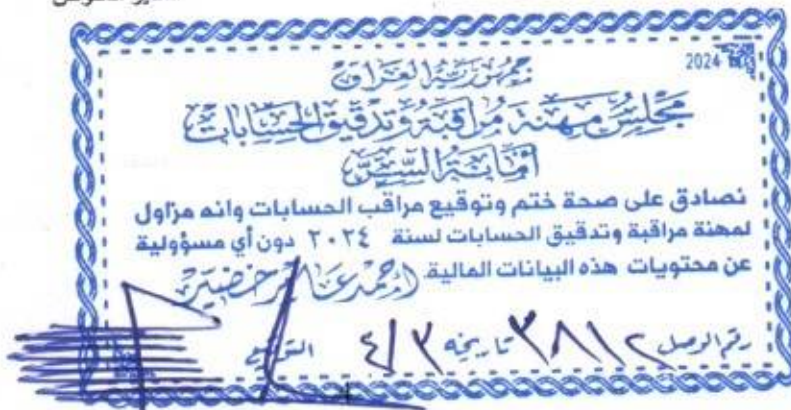 2024
جمهورية العراق
مجلس مهنة مراقبة وتدقيق الحسابات
أمانة السر
نصادق على صحة ختم وتوقيع مراقب الحسابات وانه مزاول
لمهنة مراقبة وتدقيق الحسابات لسنة ٢٠٢٤ دون أي مسؤولية
عن محتويات هذه البيانات المالية. احمد عامر خضير
رقم الوصل ٣٨١٢ تاريخه ٤/٣ التوقيع